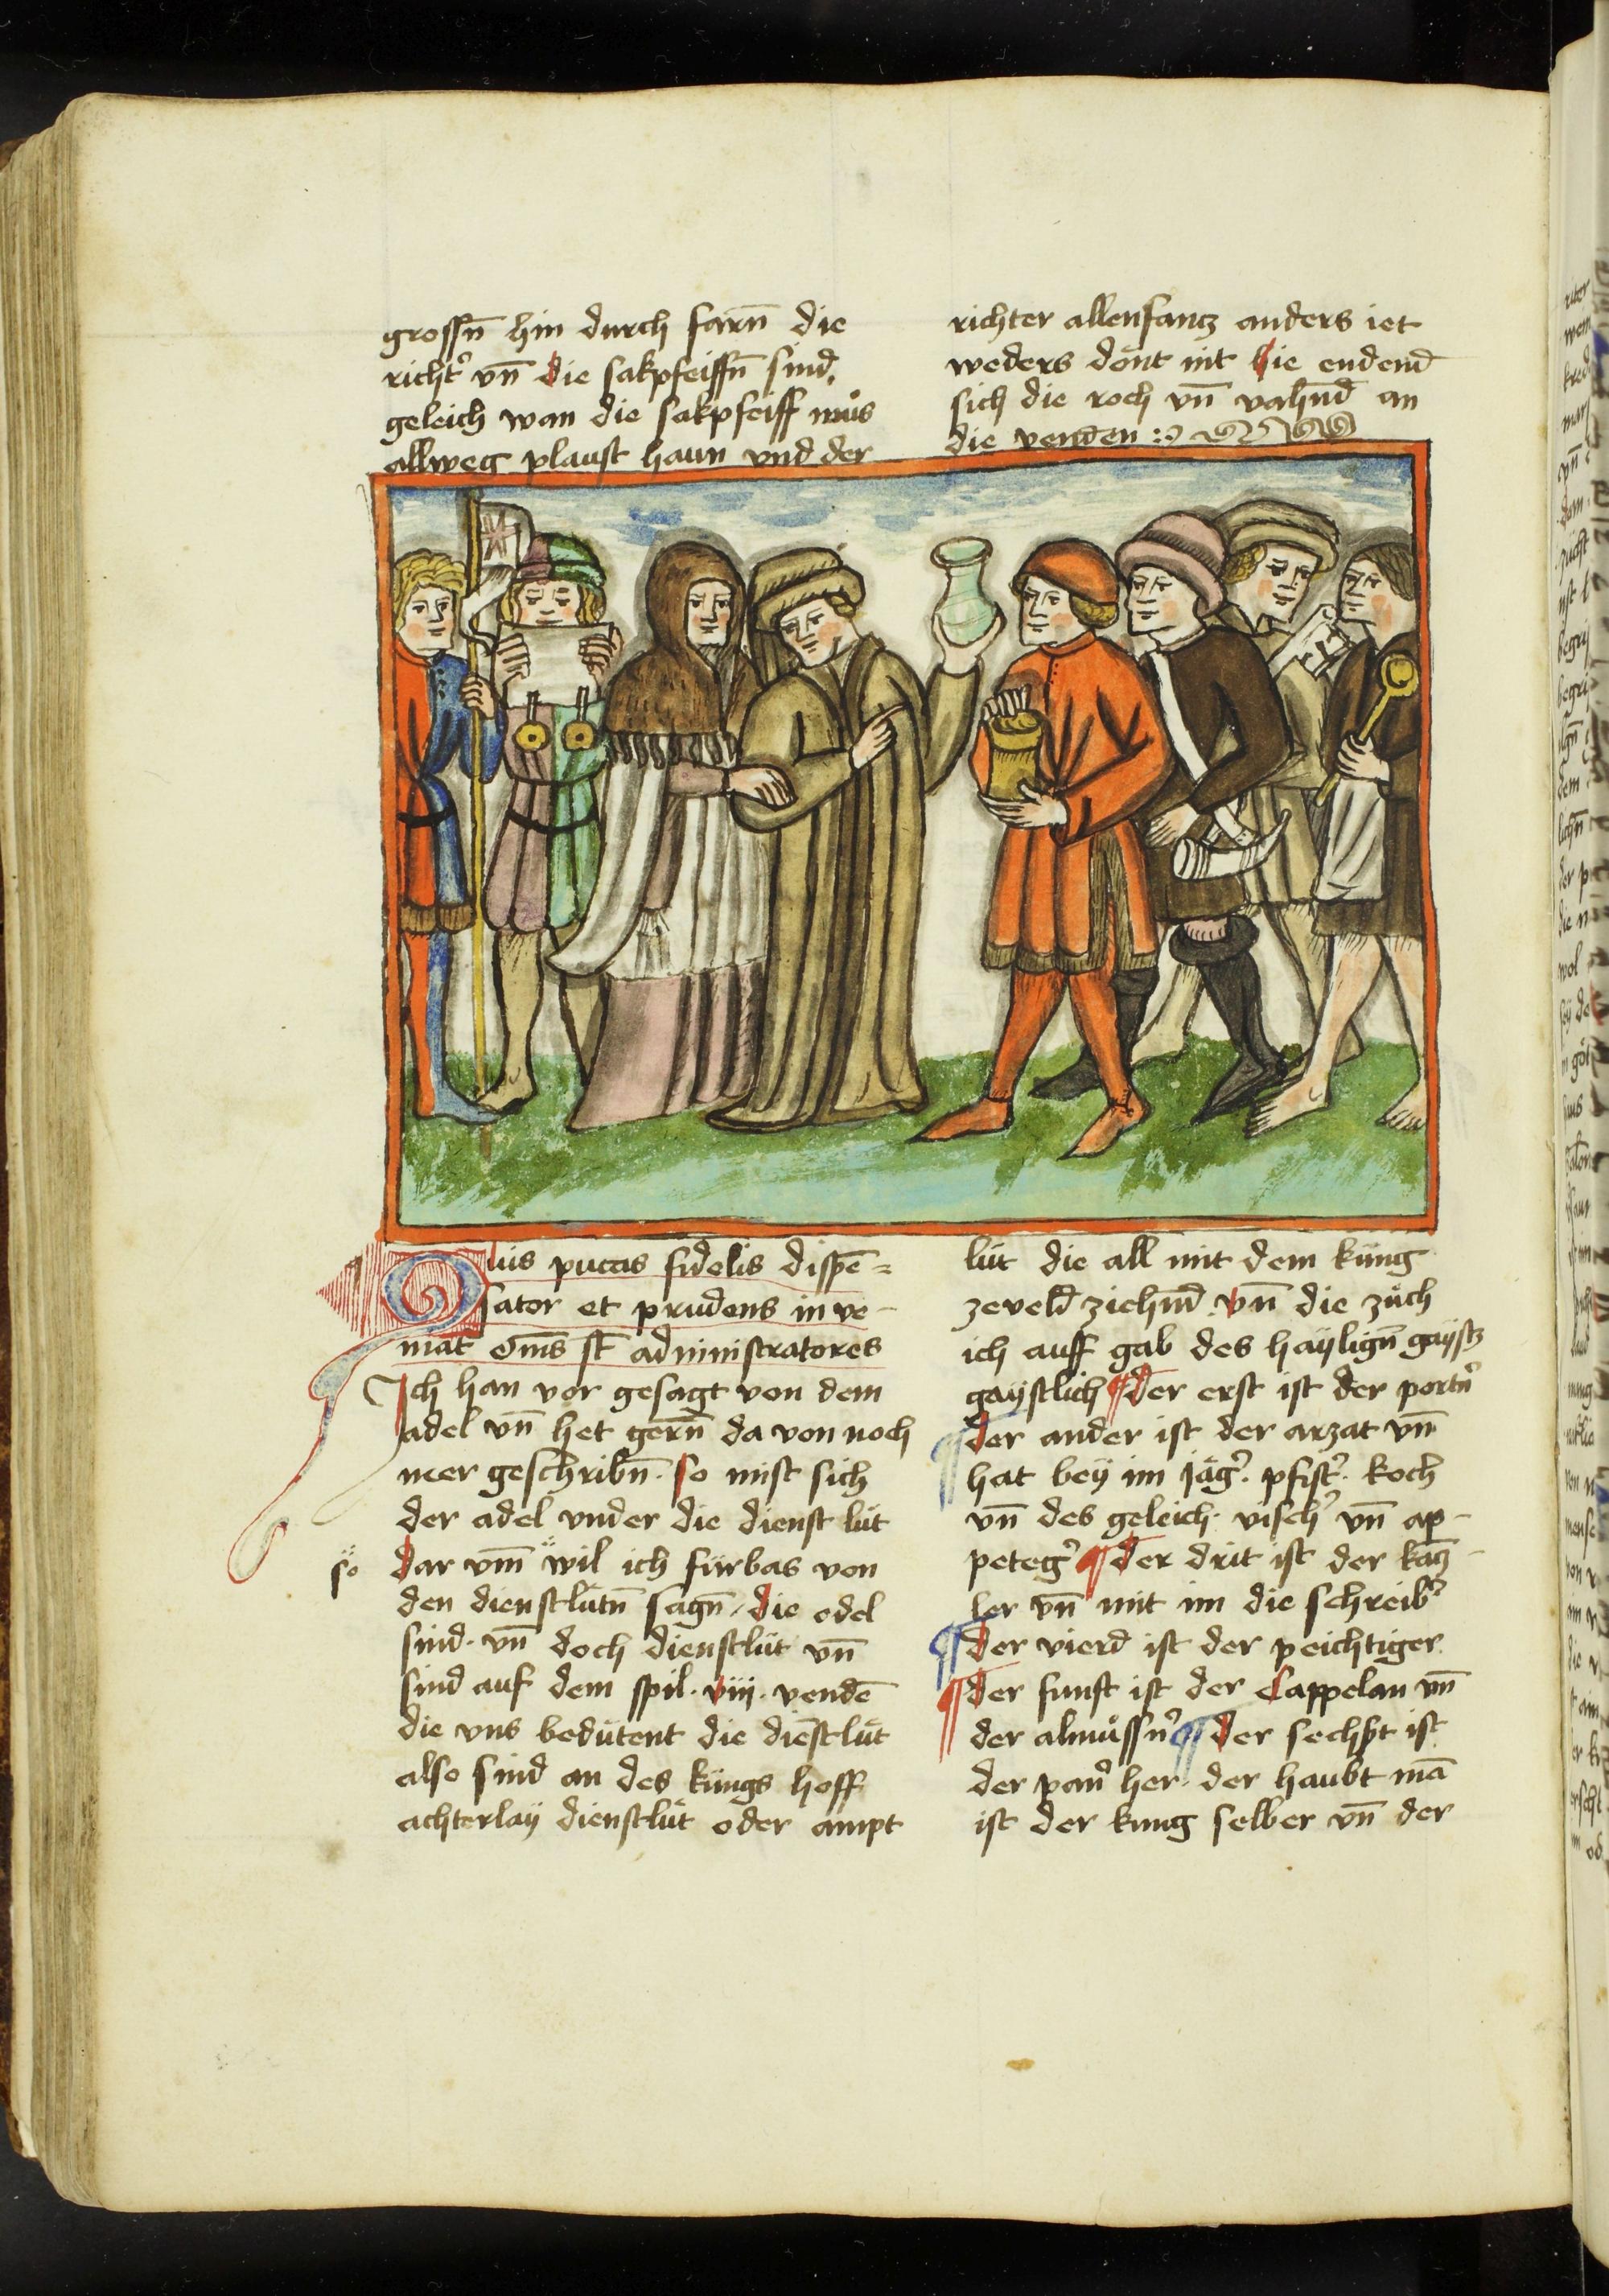 grossn̄ hin durch farn̄ die
richt͛ vn̄ die sakpfeiffn̄ sind,
geleich wan die sakpfeiff mů͏s
allweg plaust haun vnd der
richter allenfantz anders iet
weders dönt nit hie endend
sich die roch vn̄ vahnd an
die venden :
Quis putas fidelis dispē=
sator et prudens in ve-
niat om̄s st̄ administratores
Ich han vor gesagt von dem
adel vn̄ het gern̄ da von noch
mer geschribn̄. so mist sich
der adel vnder die dienst lüt
so dar vm̄ wil ich fürbas von
den dienstlütn̄ sagn̄ / die edel
sind. vn̄ doch dienstlüt vn̄
sind auf dem spil. viij. vendē
die vns bedütent die diēstlüt
also sind an des küngs hoff
achterlaÿ dienstlüt oder ampt
lüt die all mit dem küng
zeveld ziehnd. vn̄ die züch
ich auff gab des haÿlign̄ gaÿstz
gaÿstlich ¶ der erst ist der portn͛
¶ der ander ist der arzat vn̄
hat beÿ im jäg͛. pfist͛. koch
vn̄ des geleich. visch͛ vn̄ ap-
peteg͛ ¶ der drit ist der kātz-
ler vn̄ mit im die schreib͛
¶ der vierd ist der peichtiger
¶ der funft ist der Cappelan vn̄
der almůssn͛ ¶ der sechst ist
der pan͛ her. der haubt mā
ist der kung selber vn̄ der